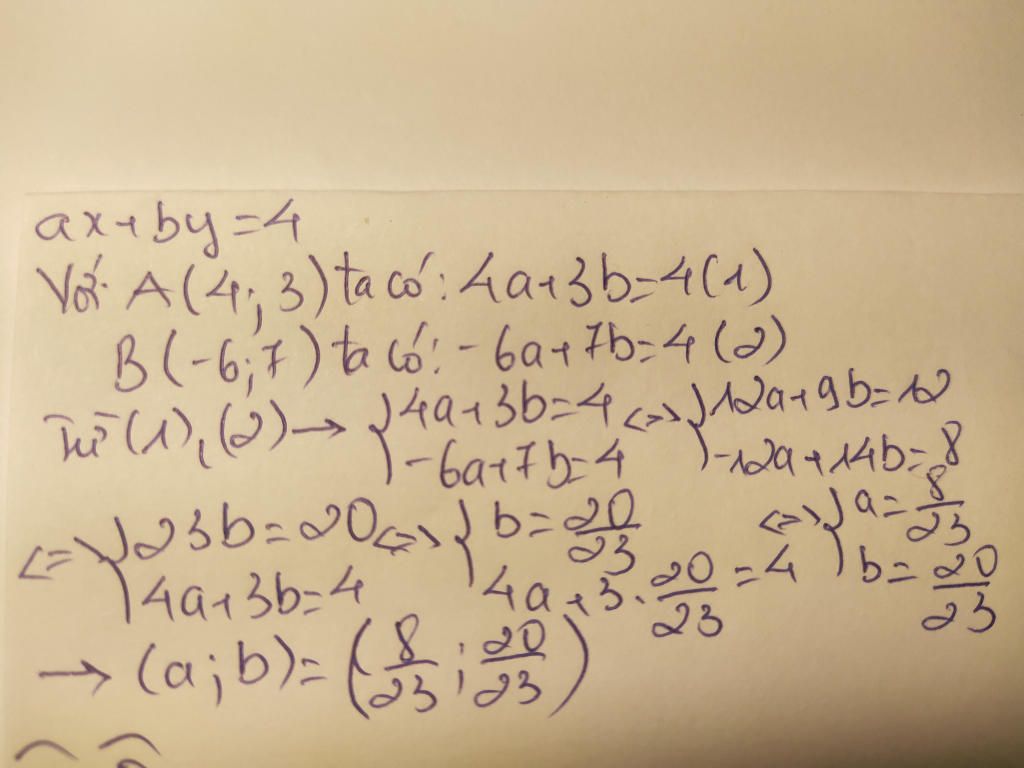 ax+by=4
Với A(4;3) ta có: 4a+3b=4(1)
B(-6;7) ta có: -6a+7b=4(2)
Từ (1),(2)→ {4a+3b=4 -6a+7b=4 <=> {12a+9b=12 -12a+14b=8
<=> {23b=20 4a+3b=4 <=> {b=20/23 4a+3.20/23=4 <=> {a=8/23 b=20/23
→ (a;b)=(8/23;20/23)